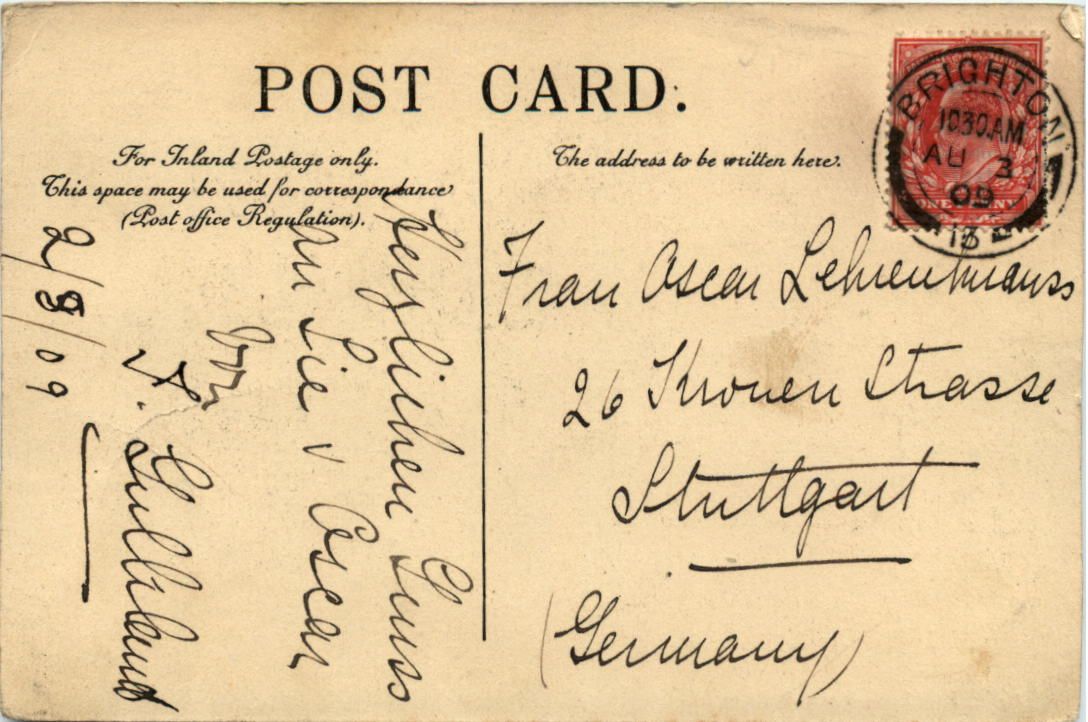 POST CARD.
For Inland Postage only.
This space may be used for correspondance
(Post office Regulation).
The address to be written here.
BRIGHTON
10 30 AM
AU 3
09
ONE PENNY
2/8/09
Herzlichen Gruss
an Sie v Oscar
von
Frau Oscar
26 Kronen Strasse
Stuttgart
(Germany)